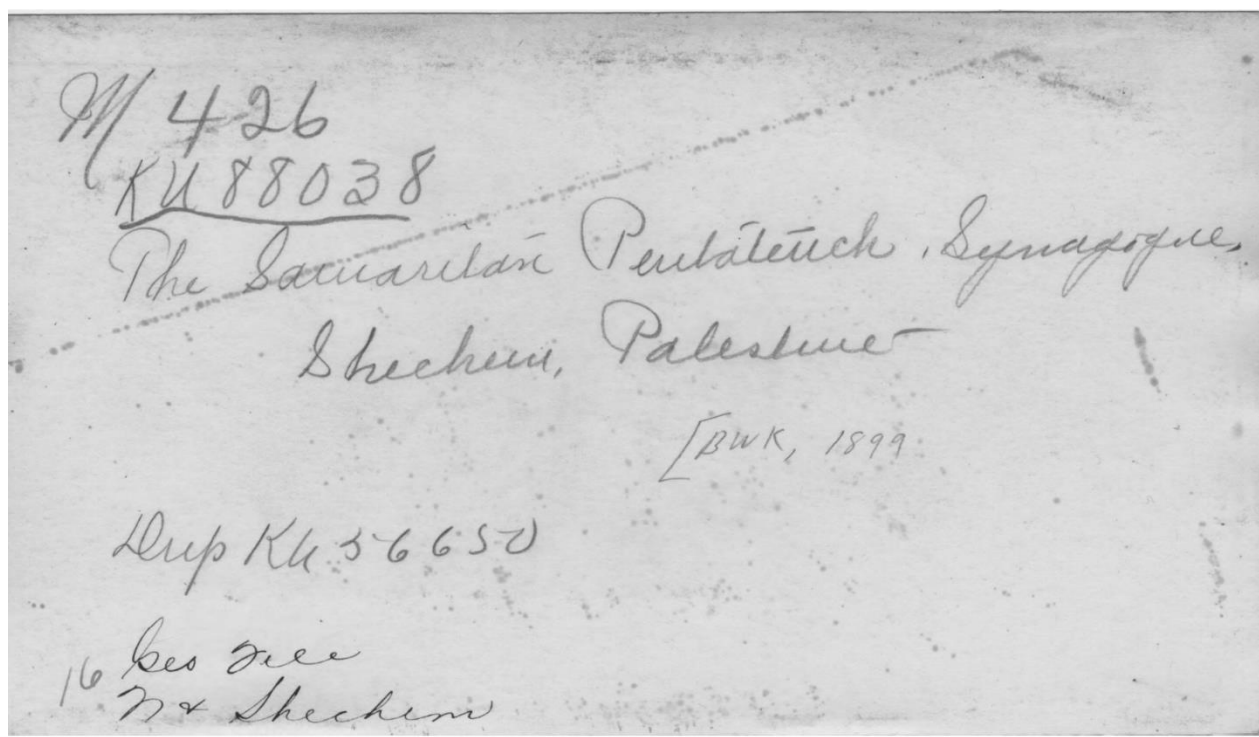 M 426
KU88038
The Samaritan Pentateuch, Synagogue,
Shechem, Palestine
[BWK, 1899
Dup Ku 56650
16 Geo File
Shechem